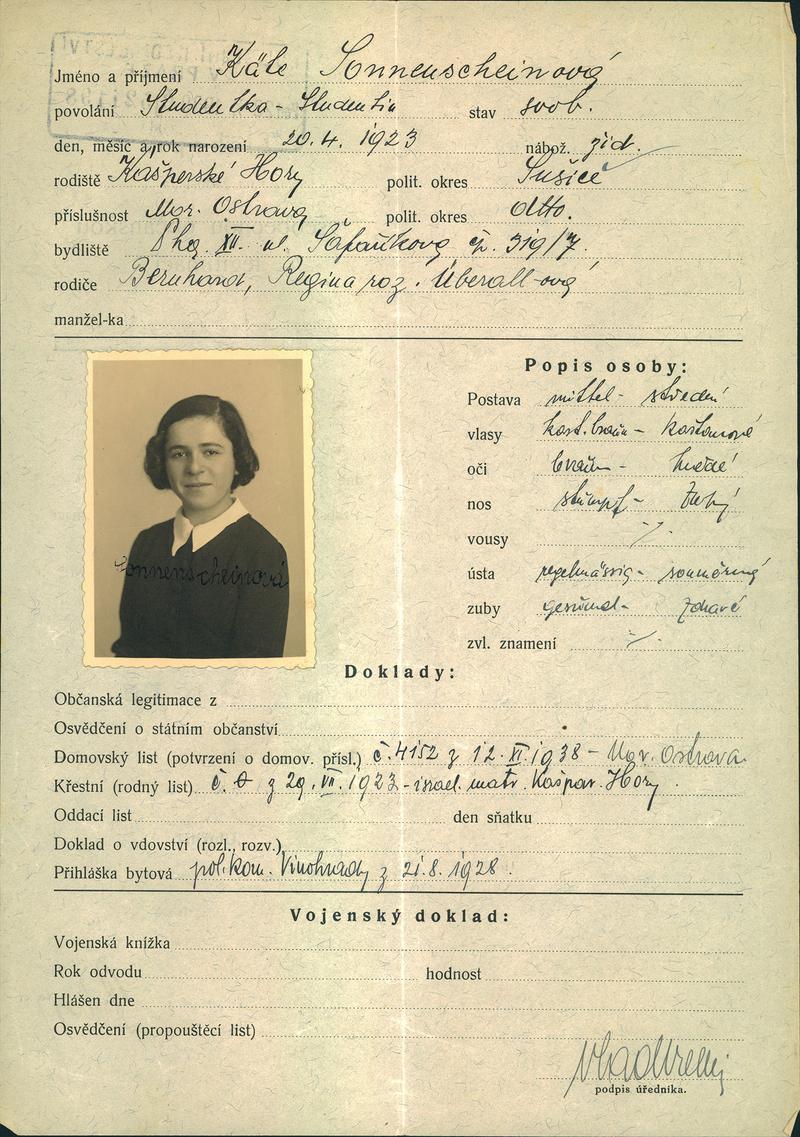 Jméno a příjmení Käte Sonnenscheinová
povolání Studentka - Studentin stav svob.
den, měsíc a rok narození 20.4. 1923 nábož. žid.
rodiště Kašperské Hory polit. okres Sušice
příslušnost Mor. Ostrava polit. okres dtto.
bydliště Phg. XII. ul. Šafaříkova čp. 319/7.
rodiče Bernhard, Regina roz. Überall-ová
manžel-ka
Popis osoby:
Postava mittel - střední
vlasy kast.braun - kaštanové
oči braun - hnědé
nos stumpf - tupý
vousy ⁒
ústa regelmässig - souměrná
zuby gesund - zdravé
zvl. znamení ⁒
Sonnenscheinová
Doklady:
Občanská legitimace z
Osvědčení o státním občanství
Domovský list (potvrzení o domov. přísl.) č. 4152 z 12.XI.1938 - Mor. Ostrava.
Křestní (rodný list) č. 0 z 29.VII.1923 - israel. matr. Kašpar. Hory.
Oddací list den sňatku
Doklad o vdovství (rozl., rozv.)
Přihláška bytová pol.kom. Vinohrady z 21.8.1928.
Vojenský doklad:
Vojenská knížka
Rok odvodu hodnost
Hlášen dne
Osvědčení (propouštěcí list)
podpis úředníka.